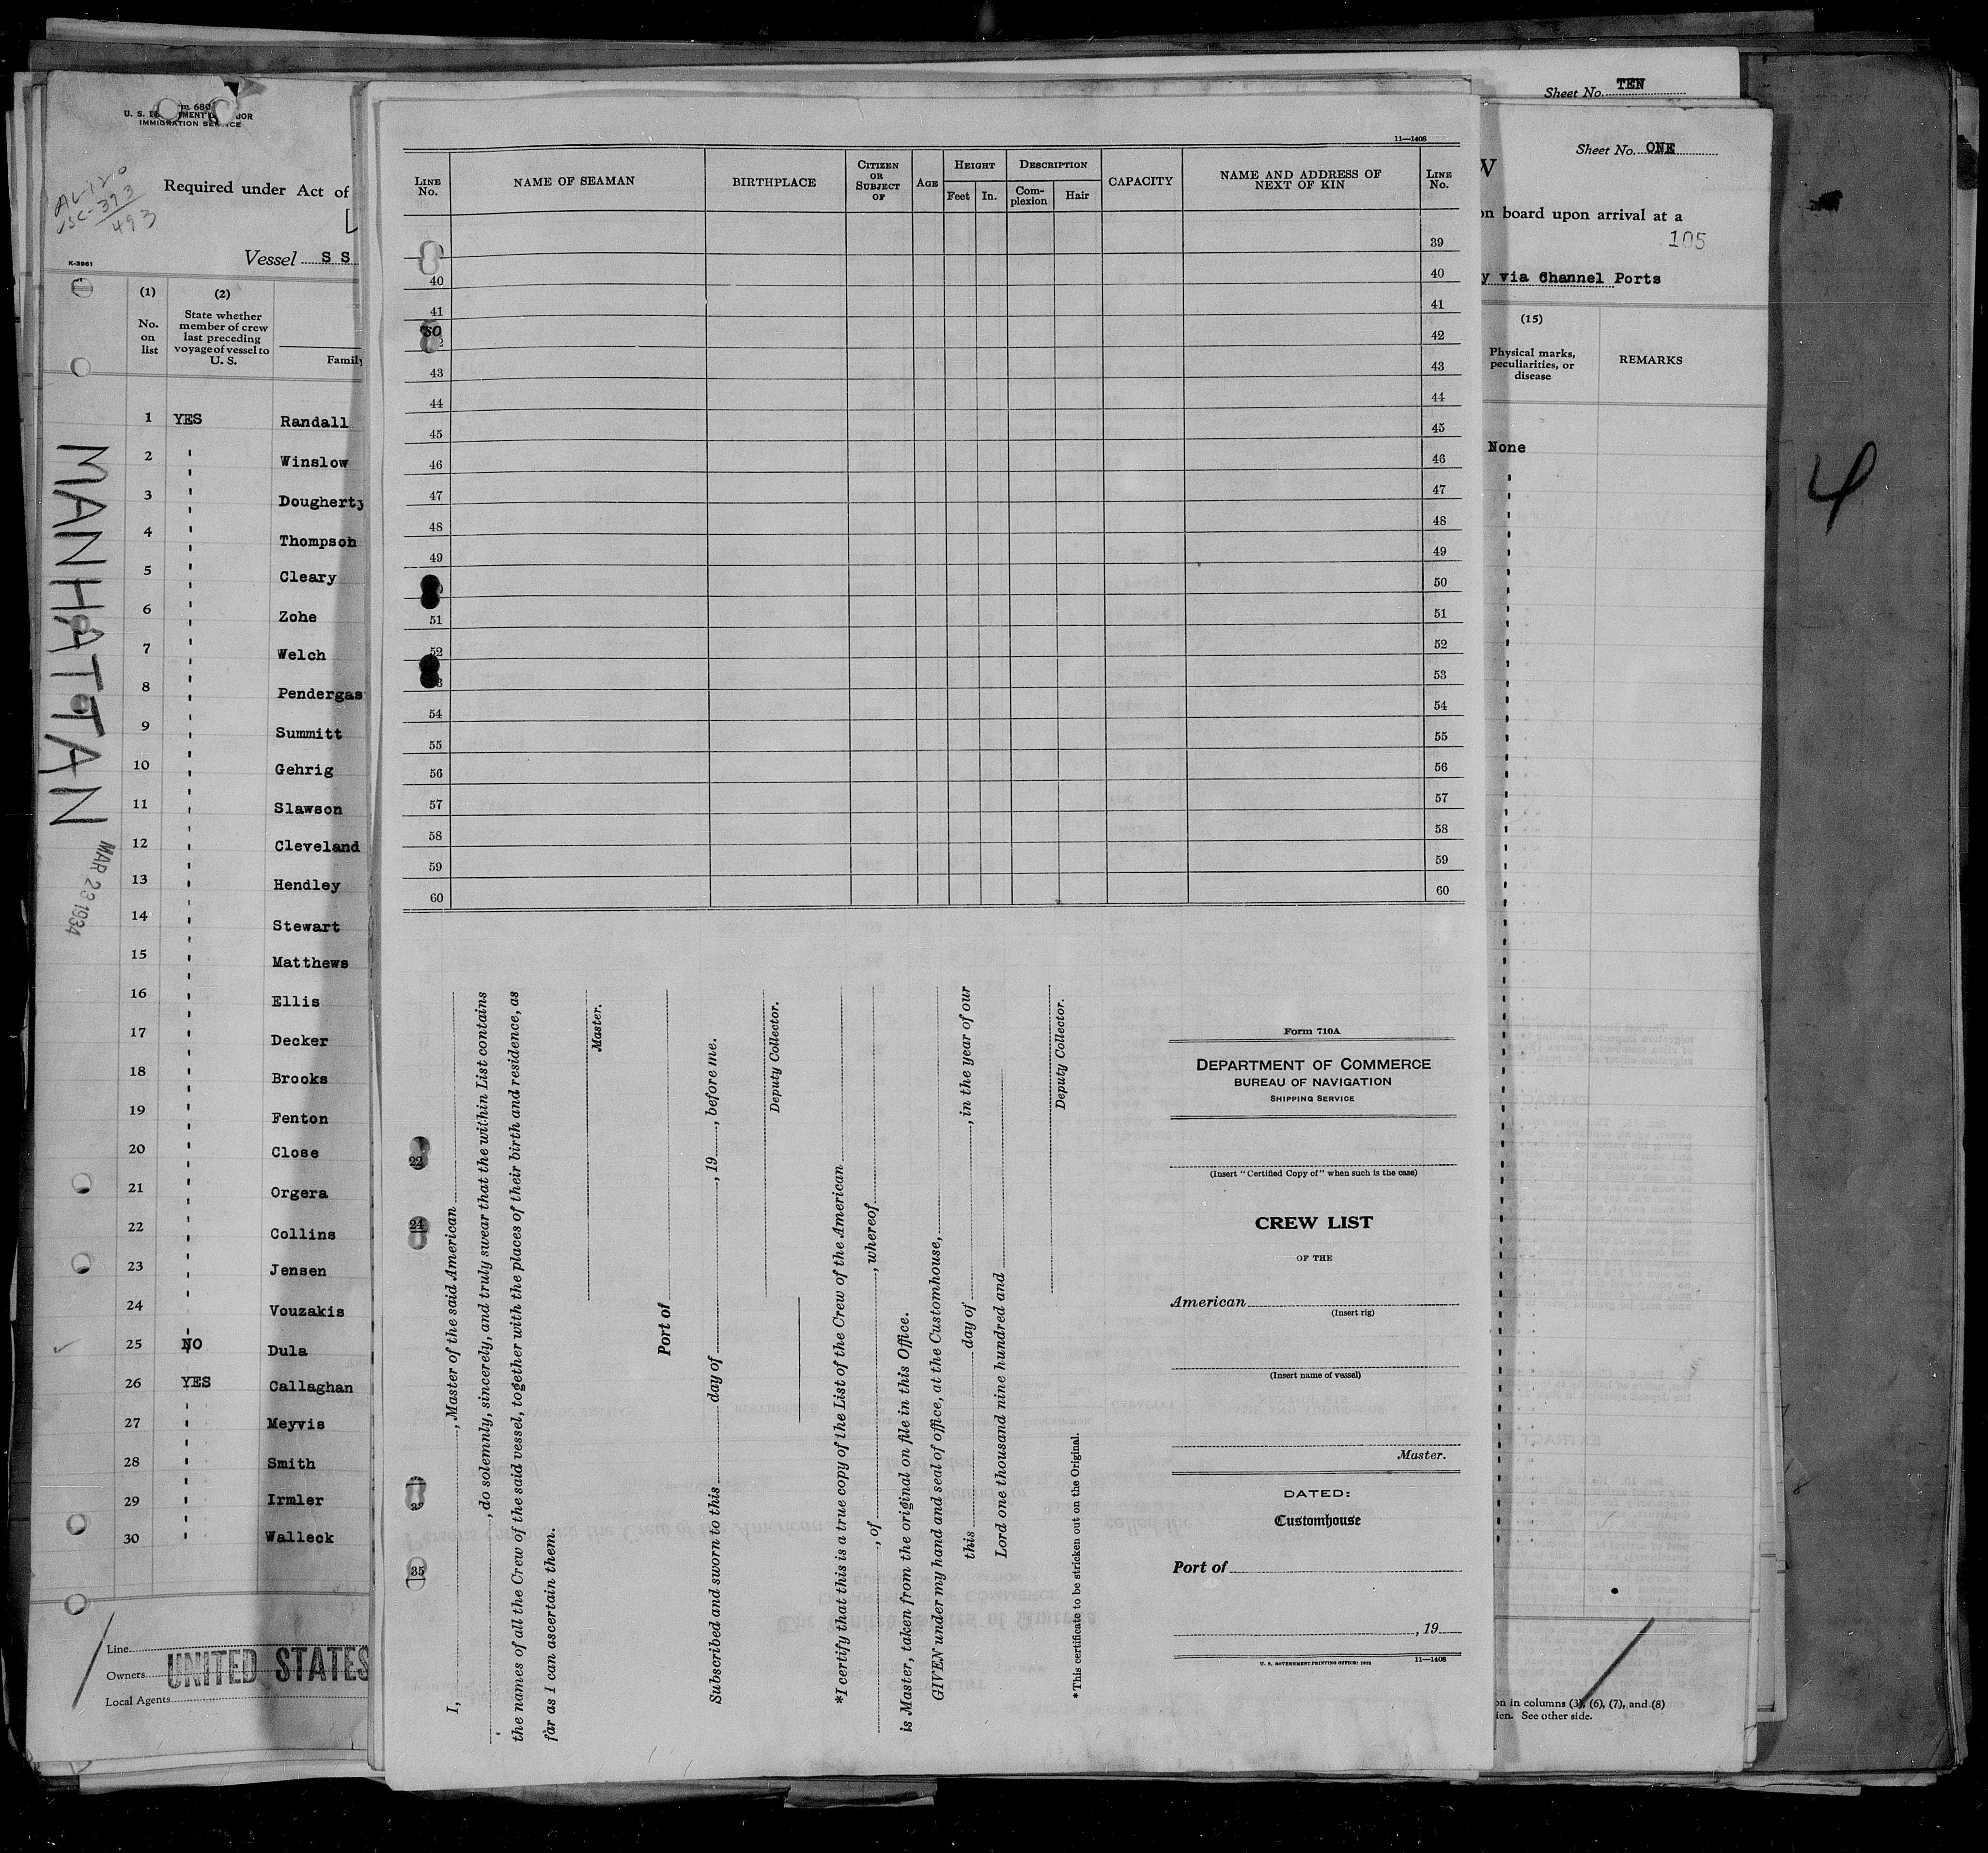 Sheet No. TEN
m 680
U. S. DEPARTMENT OF LABOR
IMMIGRATION SERVICE
AL-120
SC-373
493
Required under Act of
Vessel S S
K-3961
(1)
No.
on
list
(2)
State whether
member of crew
last preceding
voyage of vessel to
U. S.
Family
1 YES Randall
2 " Winslow
3 " Dougherty
4 " Thompson
5 " Cleary
6 " Zohe
7 " Welch
8 " Pendergas
9 " Summitt
10 " Gehrig
11 " Slawson
12 " Cleveland
13 " Hendley
14 " Stewart
15 " Matthews
16 " Ellis
17 " Decker
18 " Brooks
19 " Fenton
20 " Close
21 " Orgera
22 " Collins
23 " Jensen
24 " Vouzakis
25 NO Dula
26 YES Callaghan
27 " Meyvis
28 " Smith
29 " Irmler
30 " Walleck
MANHATTAN
MAR 23 1934
Line
Owners UNITED STATES
Local Agents
11—1408
LINE No. NAME OF SEAMAN BIRTHPLACE CITIZEN OR SUBJECT OF AGE HEIGHT Feet In. DESCRIPTION Complexion Hair CAPACITY NAME AND ADDRESS OF NEXT OF KIN LINE No.
39
40 40
41 41
42
43 43
44 44
45 45
46 46
47 47
48 48
49 49
50
51 51
52 52
53
54 54
55 55
56 56
57 57
58 58
59 59
60 60
22
24
35
I, , Master of the said American
, do solemnly, sincerely, and truly swear that the within List contains
the names of all the Crew of the said vessel, together with the places of their birth and residence, as
far as I can ascertain them.
Master.
Port of
Subscribed and sworn to this day of , 19 , before me.
Deputy Collector.
*I certify that this is a true copy of the List of the Crew of the American
, of , whereof
is Master, taken from the original on file in this Office.
GIVEN under my hand and seal of office, at the Customhouse,
this day of , in the year of our
Lord one thousand nine hundred and
Deputy Collector.
*This certificate to be stricken out on the Original.
Form 710A
DEPARTMENT OF COMMERCE
BUREAU OF NAVIGATION
SHIPPING SERVICE
(Insert "Certified Copy of" when such is the case)
CREW LIST
OF THE
American
(Insert rig)
(Insert name of vessel)
Master.
DATED:
Customhouse
Port of
, 19
U. S. GOVERNMENT PRINTING OFFICE: 1932 11—1408
Sheet No. ONE
W
on board upon arrival at a
105
y via Channel Ports
(15)
Physical marks,
peculiarities, or
disease
REMARKS
None
on in columns (3), (6), (7), and (8)
ien. See other side.
4